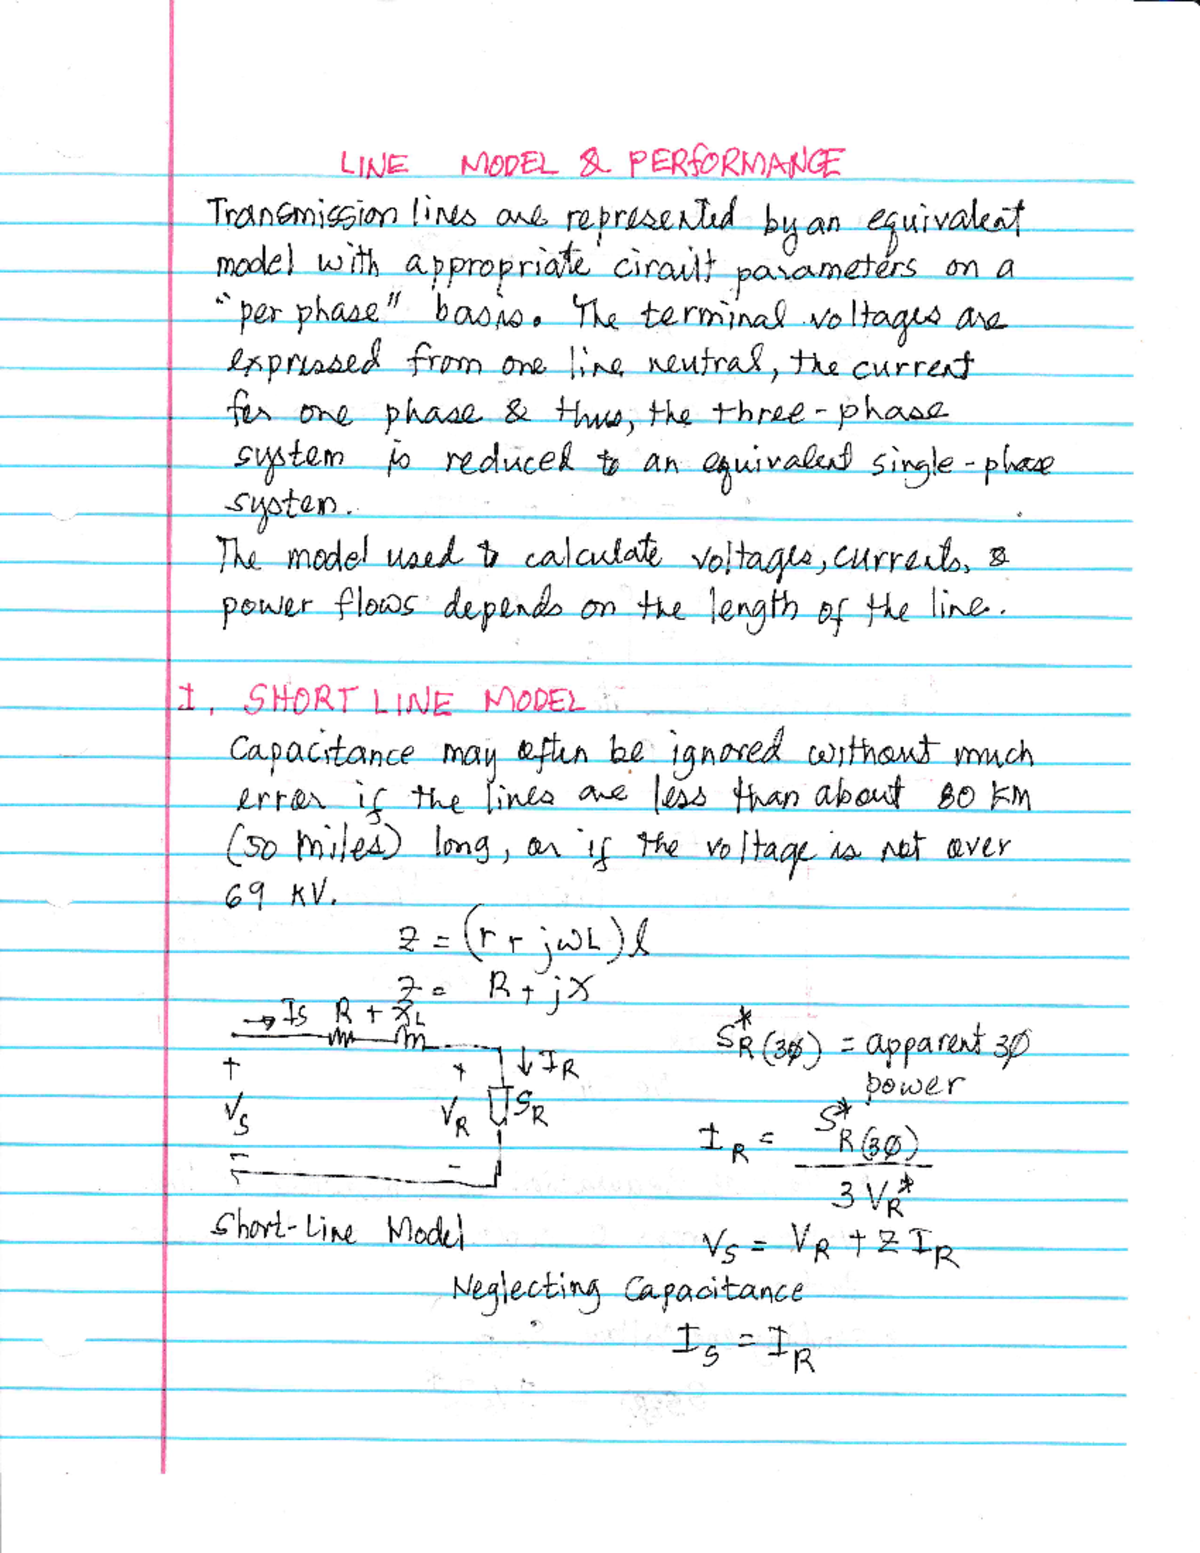 LINE MODEL & PERFORMANCE
Transmission lines are represented by an equivalent
model with appropriate circuilt parameters on a
"per phase" basis. The terminal voltages are
expressed from one line neutral, the current
for one phase & thus, the three-phase
system is reduced to an equivalent single-phase
system.
The model used to calculate voltages, currents, &
power flows depends on the length of the line.
I. SHORT LINE MODEL
Capacitance may often be ignored without much
error if the lines are less than about 80 KM
(50 miles) long, or if the voltage is not over
69 KV.
Z = (r + jωL)l
Z = R + jX
→ Is R + XL
+ + ↓ IR
Vs VR SR
- -
Short-Line Model
S*R(3φ) = apparent 3φ
power
IR = S*R(3φ)
3 VR*
Vs = VR + Z IR
Neglecting Capacitance
Is = IR